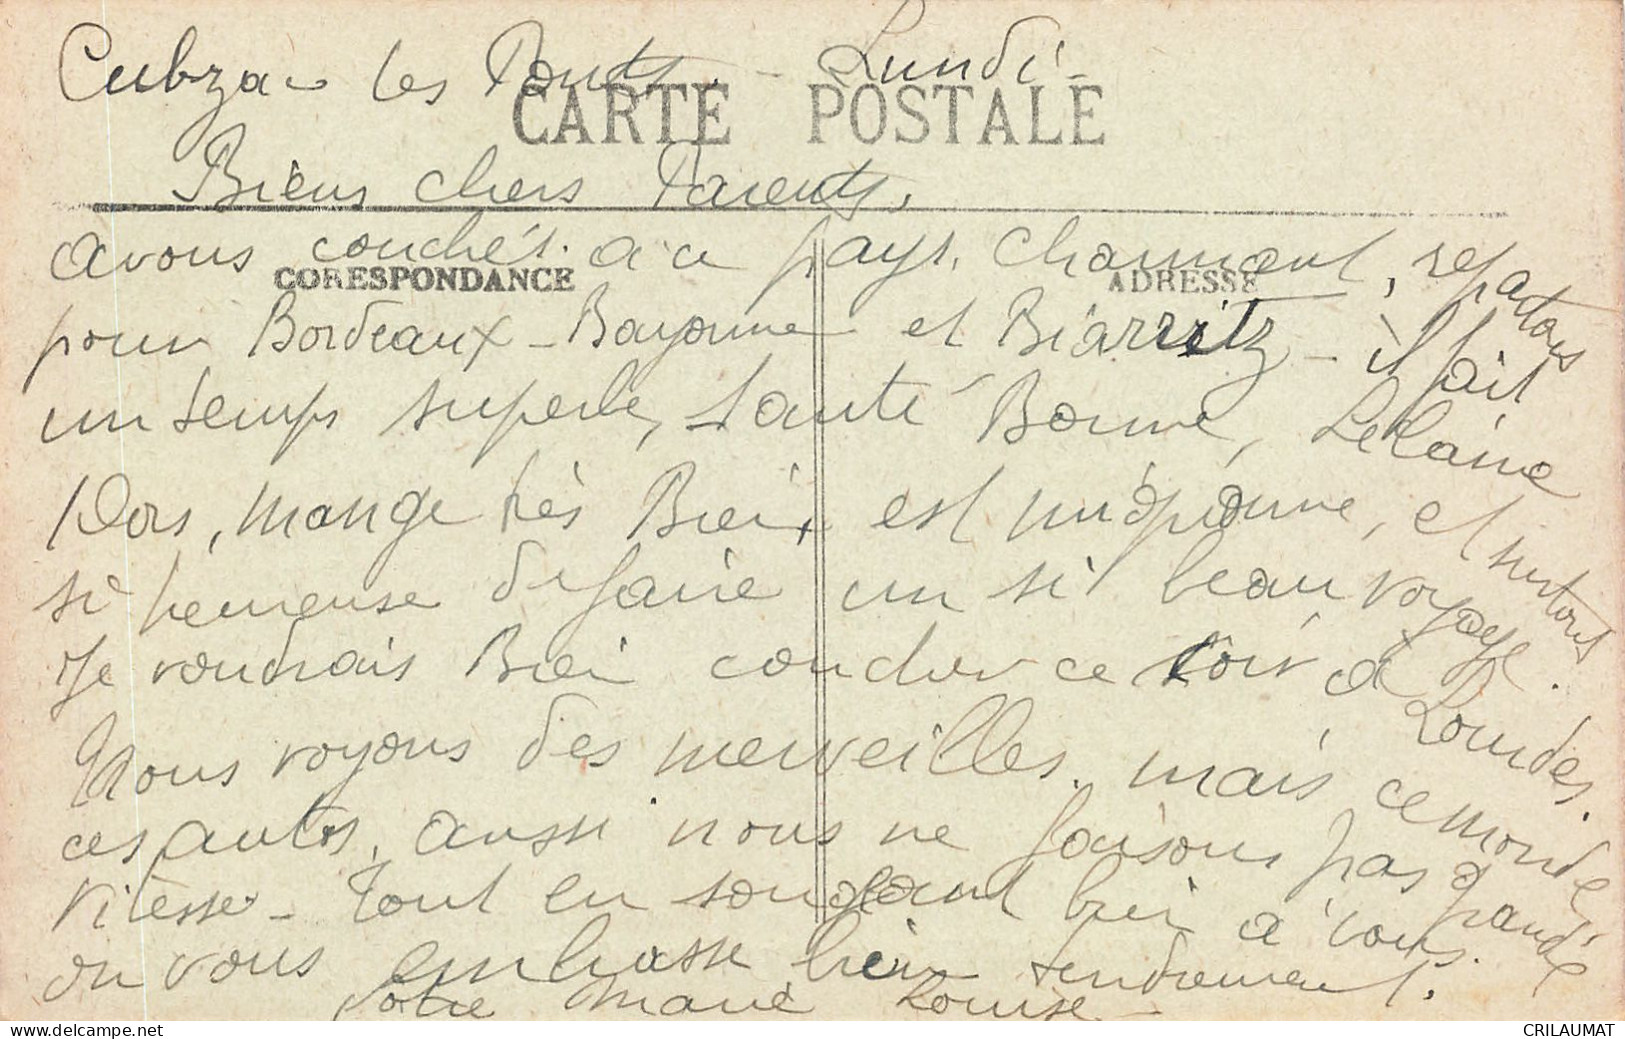 Cubzac les Ponts. - Lundi -
CARTE POSTALE
Biens chers Parents,
avons couchés à ce pays, charmant, repartons
CORESPONDANCE
ADRESSE
pour Bordeaux - Bayonne et Biarritz - il fait
un temps superbe, santé Bonne,
Dors, mange très Bien, est mignonne, et surtout
si heureuse de faire un si beau voyage.
Je voudrais Bien coucher ce soir à Lourdes.
Nous voyons des merveilles, mais ce monde,
ces autos, aussi nous ne faisons pas grande
vitesse - Tout en songeant bien à vous.
on vous embrasse bien tendrement.
Votre Marie Louise -
delcampe.net
CRILAUMAT